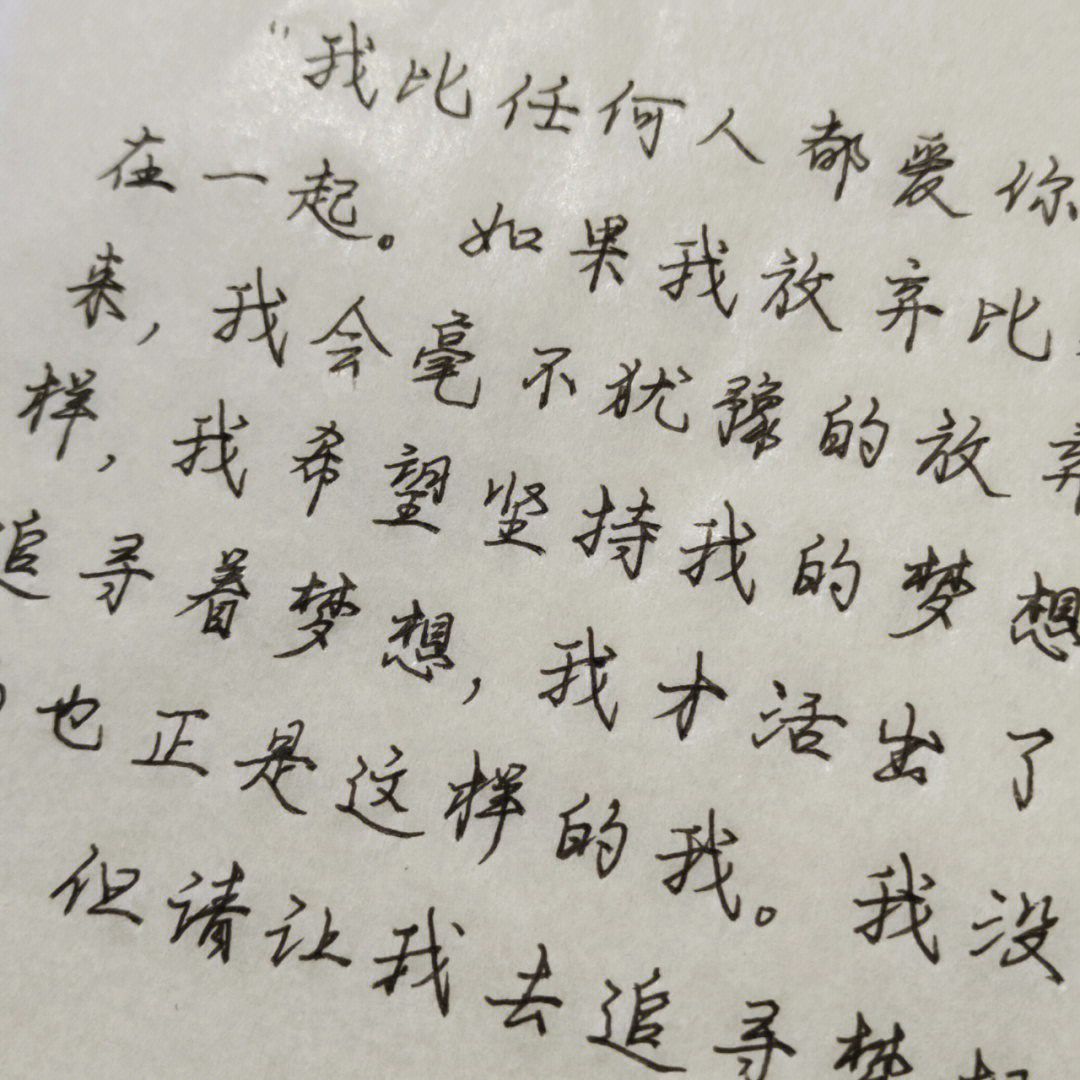 “我比任何人都爱你
在一起。如果我放弃比
来，我会毫不犹豫的放弃
样，我希望坚持我的梦想
追寻着梦想，我才活出了
也正是这样的我。我没
但请让我去追寻梦想